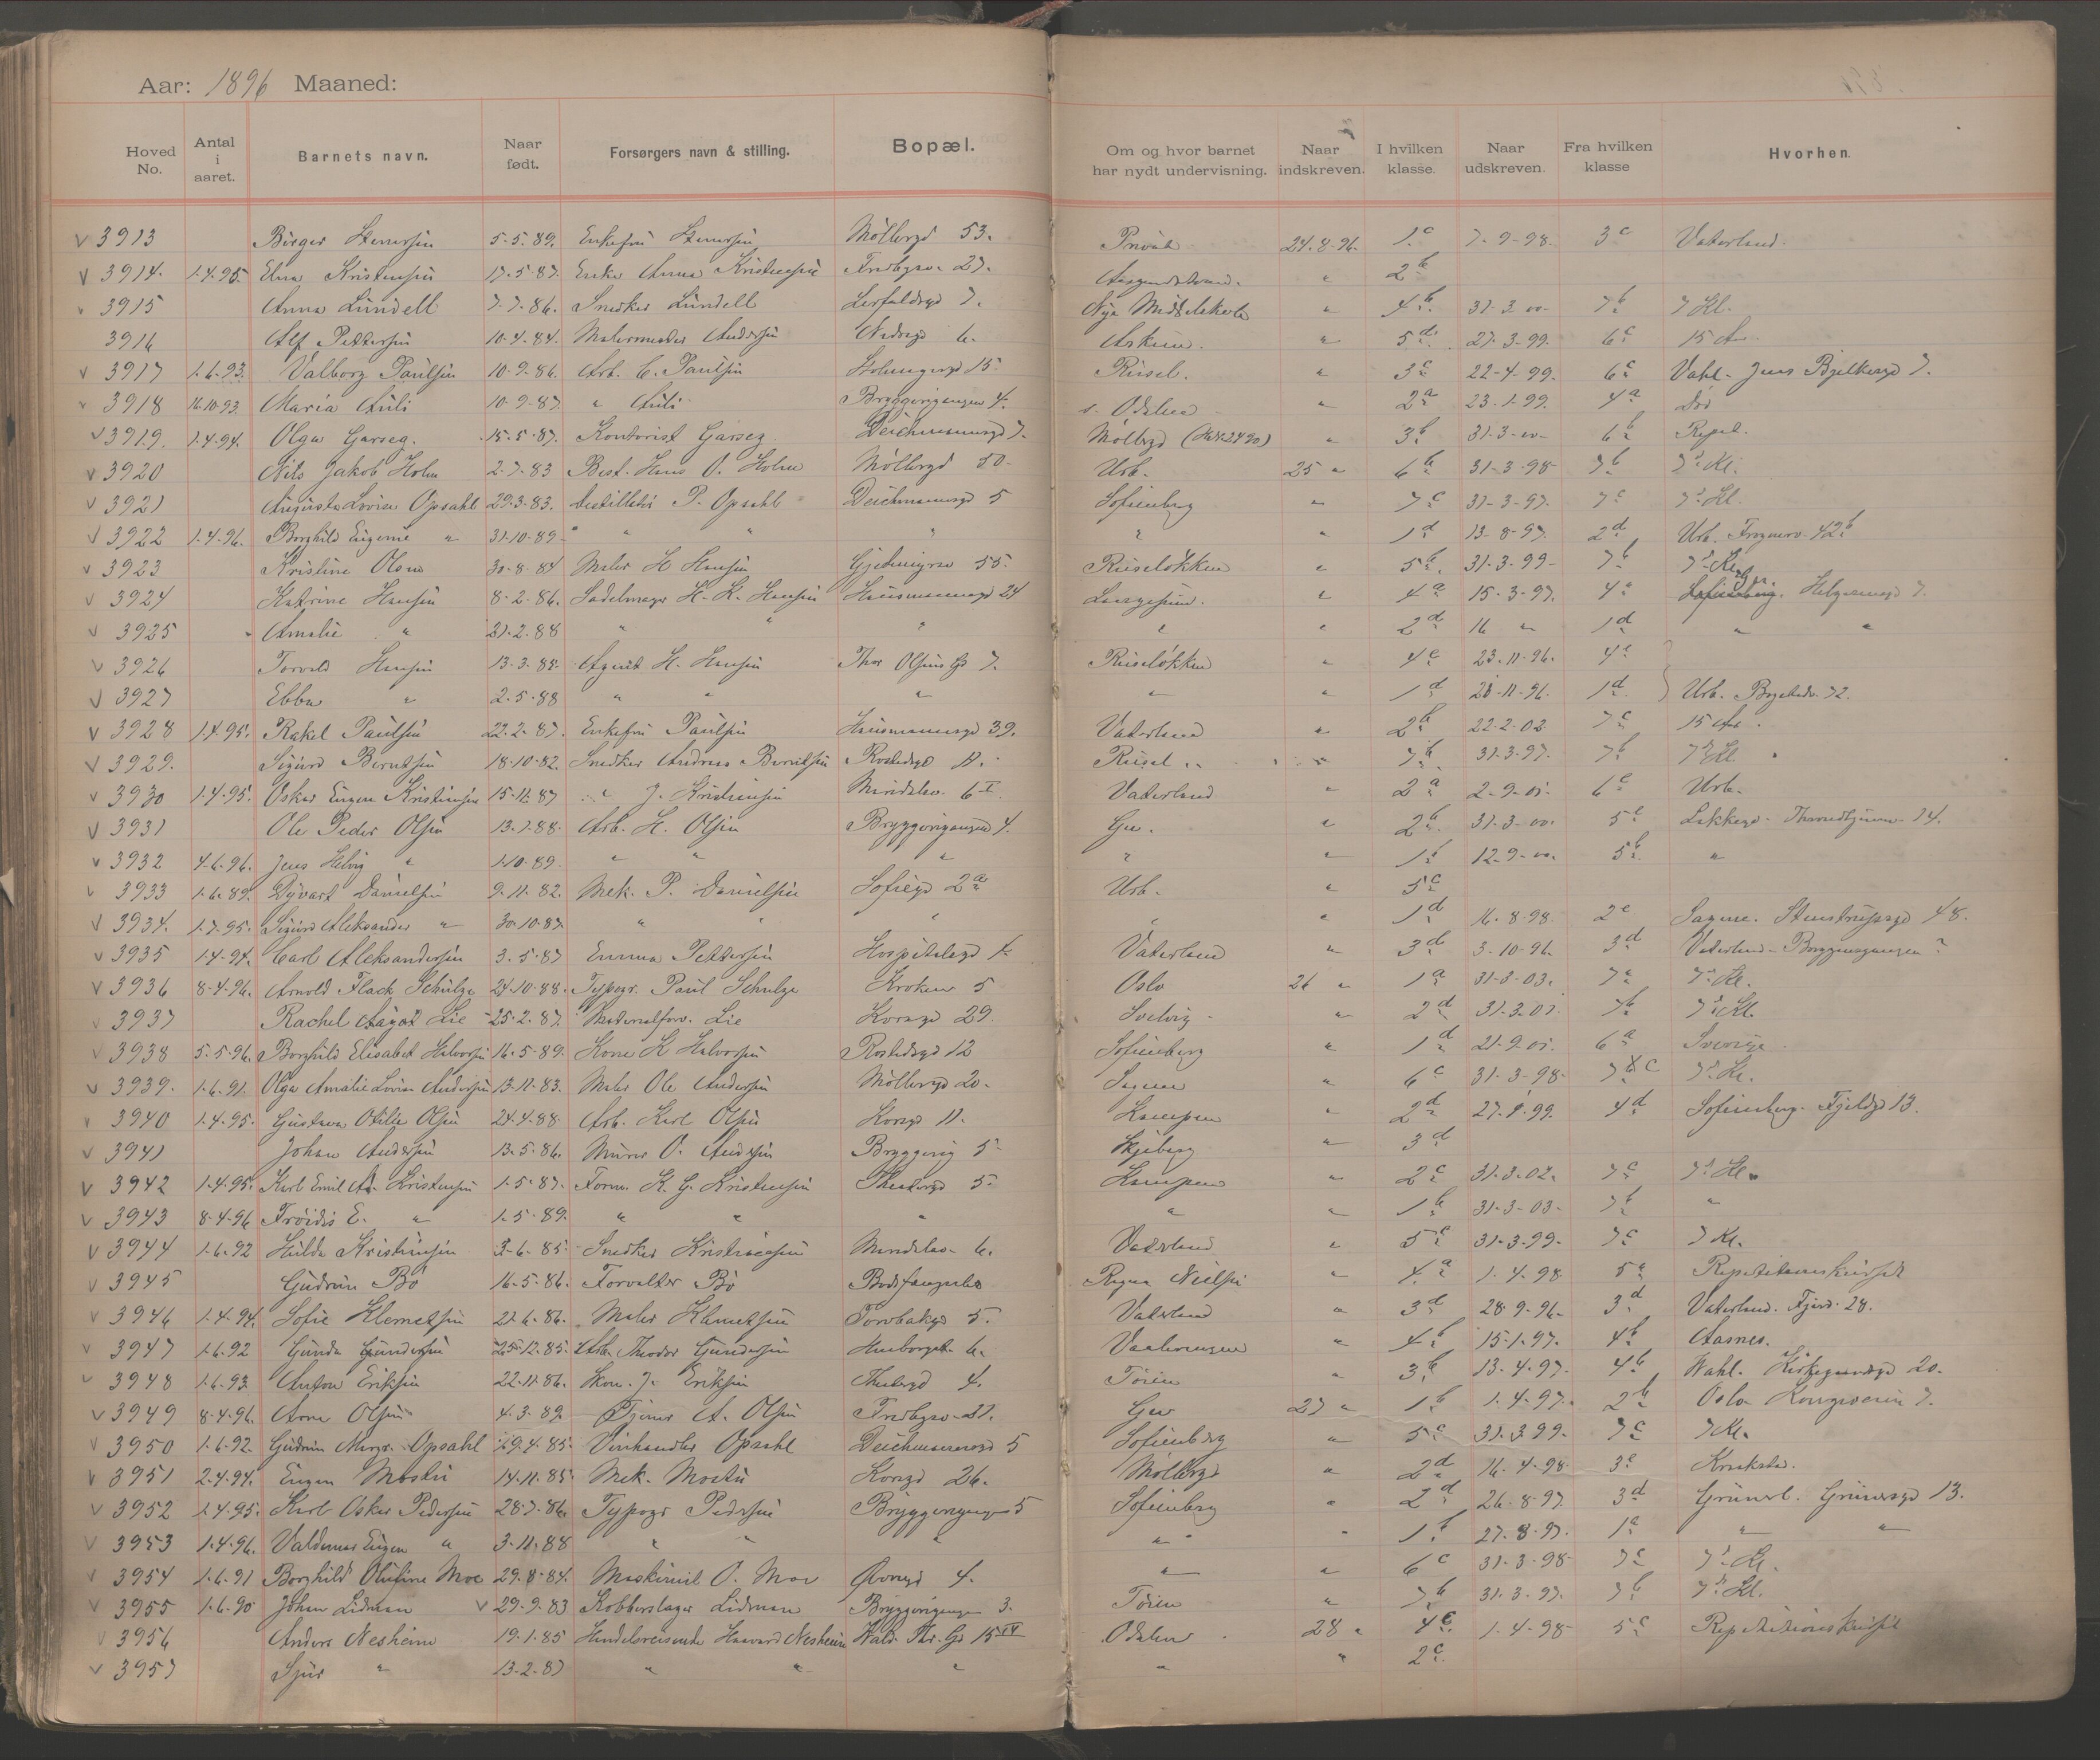 Aar: 1896 Maaned:
Hoved No. Antal i aaret. Barnets navn. Naar født. Forsørgers navn & stilling. Bopæl. Om og hvor barnet har nydt undervisning. Naar indskreven. I hvilken klasse. Naar udskreven. Fra hvilken klasse Hvorhen.
3913 Birger 5-5-89. Enkefru Møllergd 53. Privat 24-8-96. 1c 7-9-98. 3c Vaterland.
3914. 1-4-95. Elna Kristensen 17-5-87. Enke Anna Kristensen 27. " 2b
3915 Anna Lundell 7-7-86. Snedker Lundell 7. Nya " 4b 31-3-00- 7b 7 Kl.
3916 Alf Pettersen 10-4-84. Malermester Andersen 6. Askim. " 5d 27-3-99. 6c 15 Aar.
3917 1-6-93. Valborg Paulsen 10-9-86. Arb. C. Paulsen 15. Rusel. " 3c 22-4-99. 6c Vahl. Jens Bjelkesgd 7.
3918 16-10-93. Maria Auli 10-9-87. " Auli Bryggerigangen 4. s. Odalen " 2a 23-1-99. 4a Død
3919. 1-4-94. Olga 15-5-87. Kontorist Deichmannsgd 7. Møllergd " 3b 31-3-00- 6b Repet.
3920 Nils Jakob Holm 2-7-83 Best. Hans O. Holm Møllergd 50. Urb. 25 " 6b 31-3-98- 7b 7de Kl.
3921 Augusta Lovise Opsahl 29-3-83. Destillatør P. Opsahl Deichmannsgd 5 Sofienberg " 7c 31-3-97. 7c 7de Kl.
3922 1-4-96. Borghild Eugenie " 31-10-89 " " " " " 1d 13-8-97. 2d Urb. Frognerv. 42b
3923 Kristine Olsen 30-8-84 Maler H Hansen 55. Ruseløkken " 5b. 31-3-99- 7b 7de Kl.
3924 Katrine Hansen 8-2-86. Sadelmager H. K. Hansen Hausmannsgd 24 Langesund. " 4a 15-3-97. 4a Helgesensgd 7.
3925 Amalie " 21-2-88 " " " " " 2d 16 " 1d " "
3926 Torvald Hansen 13-3-85. Agent H. Hansen Thor Olsens G 7. Ruseløkken " 4c 23-11-96. 4c
3927 Ebba " 2-5-88 " " " " " 1d 28-11-96. 1d. Urb. Bygdøv. 72.
3928 1-4-95. Rakel Paulsen 22-2-87. Enkefru Paulsen Hausmannsgd 39. Vaterland " 2b 22-2-02 7c 15 Aar.
3929. Sigurd Berntsen 18-10-82. Snedker Andreas Berntsen Rostedsgd 11. Rusel " 7b 31-3-97. 7b 7de Kl
3930 1-4-95. Oskar Eugen Kristensen 15-11-87 " J. Kristensen Maridalsv. 6 I. Vaterland " 2a 2-9-01- 6c Urb.
3931 Ole Peder Olsen 13-1-88. Arb. H. Olsen Bryggerigangen 4. Grw. " 2b. 31-3-00. 5c Lakkegd. 14.
3932 4-6-96. Jens Helvig " 1-10-89. " " " " " 1b 12-9-00. 5b. "
3933 1-6-89. Danielsen 9-11-82. Mek. P. Danielsen Sofiegd 2a Urb. " 5c
3934. 1-7-95. Sigurd Aleksander " 30-10-87 " " " " " 1d 16-8-98. 2c Sagene. Stenstrupsgd 48.
3935 1-4-94. Carl Aleksandersen 3-5-87 Emma Pettersen Hospitalsgd 4. Vaterland " 3d 3-10-96. 3d Vaterland - Bryggerigangen ?
3936 8-4-96. Arnold Flack Schulze 24-10-88. Typogr. Paul Schulze Kroken 5 Oslo 26 " 1a 31-3-03. 7a 7de Kl.
3937 Rachel Aagot Lie 25-2-87. Materialforv. Lie Korsgd 29. Svelvig " 2d 31-3-01. 7b 7de Kl.
3938 5-5-96. Borghild Elisabet Halvorsen 16-5-89. Kone K Halvorsen Rostedsgd 12 Sofienberg " 1d 21-9-01. 6a Sverige.
3939. 1-6-91. Olga Amalie Lovise Andersen 13-11-83. Maler Ole Andersen Møllergd 20. Sagene " 6c 31-3-98- 7c 7de Kl.
3940 1-4-95. Gustava Otilie Olsen 24-4-88. Arb. Karl Olsen Korsgd 11. Kampen " 2d 27-1-99. 4d Sofienberg. Fjeldgd 13.
3941 Johan Andersen 13-5-86. Murer O. Andersen Bryggerig 5 Skjeberg " 3d
3942 1-4-95. Karl Emil A. Kristensen 1-5-87. Form. K. G. Kristensen Theatergd 5. Kampen " 2c 31-3-02. 7c 7de Kl.
3943 8-4-96 Frøidis E. " 1-5-89. " " " " " 1b 31-3-03- 7b "
3944 1-6-92 Hulda Kristensen 3-6-85. Snedker Kristensen Maridalsv. 6. Vaterland " 5c 31-3-99- 7c 7 Kl.
3945 Gudrun Bø 16-5-86. Forvalter Bø Bodsfængslet Ragna Nielsen " 4a 1-4-98. 5a Repetitionskurset
3946 1-4-94. Sofie Klemetsen 21-6-86. Maler Klemetsen Torvbakgd 5. Vaterland " 3d 28-9-96- 3d Vaterland. 28.
3947 1-6-92 Gunda Gundersen 25-12-85. Arb. Theodor Gundersen 6. Vaalerengen " 4b 15-1-97. 4b Aasnes.
3948 1-6-93 Anton Eriksen 22-11-86. Skom. J. Eriksen 4. Tøien " 3b 13-4-97- 4b Wahl. 20.
3949 8-4-96. Arne Olsen 4-3-89. Tjener A. Olsen 27. Grw 27 " 1b 1-4-97. 2b Oslo 7.
3950 1-6-92. Gudrun Margr. Opsahl 29-4-85. Vinhandler Opsahl Deichmannsgd 5 Sofienberg " 5c 31-3-99. 7c 7 Kl.
3951 2-4-94. Eugen Mostu 14-11-85 Mek. Mostu Korsgd 26. Møllergd " 2d 16-4-98. 3c
3952 1-4-95. Karl Oskar Pedersen 28-7-86. Typogr Pedersen Bryggerigangen 5 Sofienberg " 2d 26-8-97. 3d Grünerl. Grünersgd 13.
3953 1-4-96. Valdemar Eugen " 3-11-88 " " " " " 1b 27-8-97. 1a " "
3954 1-6-91 Borghild Olufine Moe 29-8-84. Maskinist O. Moe 4. " " 6c 31-3-98- 7c 7de Kl.
3955 1-6-90 Johan Lidman 29-9-83 Kobberslager Lidman Bryggerigangen 3. Tøien " 7b 31-3-97. 7b 7de Kl.
3956 Anders Nesheim 19-1-85 Handelsreisende Haavard Nesheim Wald. Thr. Gd 15 IV Odalen 28 " 4c. 1-4-98- 5c Repetitionskurset
3957 Sjur " 13-2-87 " " " " " 2c.